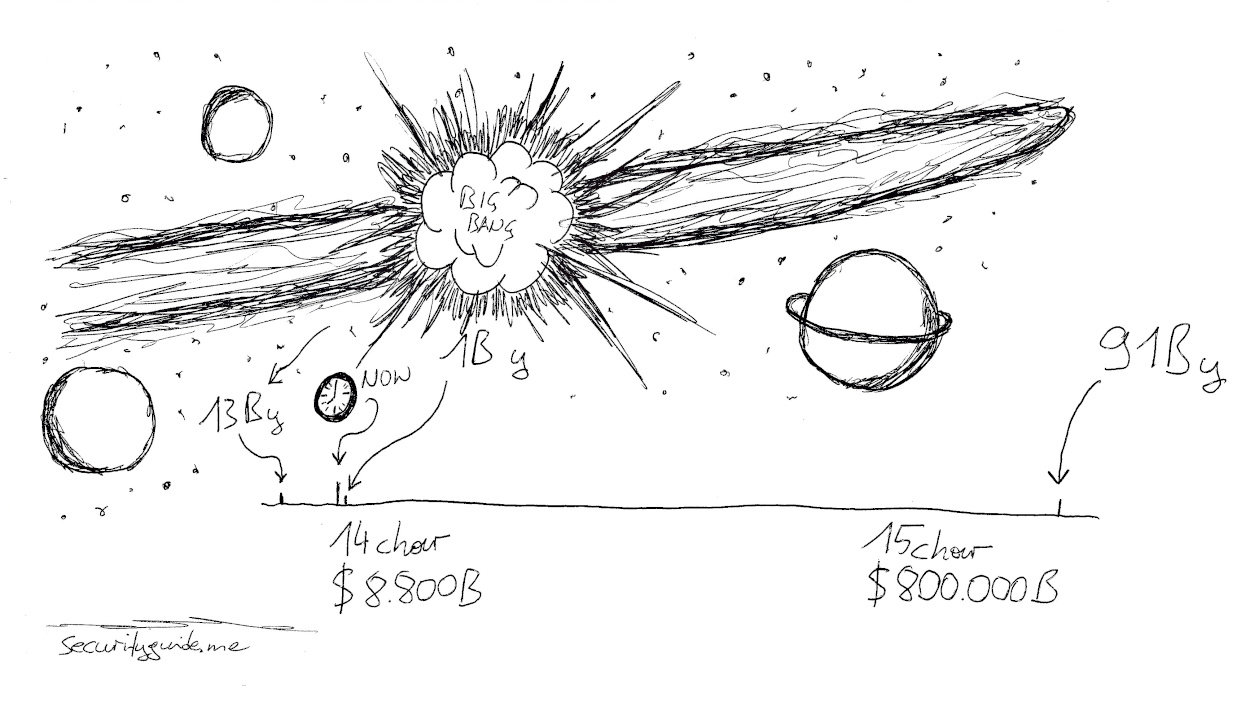 BIG
BANG
1By
NOW
13By
91By
14char
$8.800B
15char
$800.000B
securityguide.me